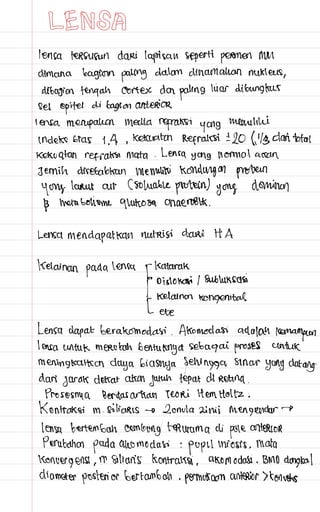 LENSA
lensa tersusun dari lapisan seperti permen MM
dimana bagian paling dalam dinamakan nukleus,
dibagian tengah cortex dan paling luar dibungkus
sel epitel di bagian anterior
lensa merupakan media refraksi yang memiliki
indeks bias 1,4, kekuatan Refraksi ± 20 (1/3 dari total
kekuatan refraksi mata. Lensa yang normal akan
Jernih disebabkan memiliki kandungan protein
yang larut air (soluable protein) yang dominan
& metabolisme glukosa anaerobik.
Lensa mendapatkan nutrisi dari HA
Kelainan pada lensa - Katarak
- Dislokasi / Subluksasi
- Kelainan kongenital
- etc
Lensa dapat berakomodasi. Akomodasi adalah kemampuan
lensa untuk merubah bentuknya sebagai proses untuk
meningkatkan daya biasnya sehingga sinar yang datang
dari jarak dekat akan jatuh tepat di Retina.
Prosesnya Berdasarkan Teori Helmholtz.
Kontraksi m. siliaris → Zonula zinii mengendur →
lensa bertambah cembung terutama di pole anterior
Perubahan pada akomodasi : pupil miosis, mata
konvergensi, m siliaris kontraksi, akomodasi. BMD dangkal
diameter posterior bertambah. permukaan anterior > konveks